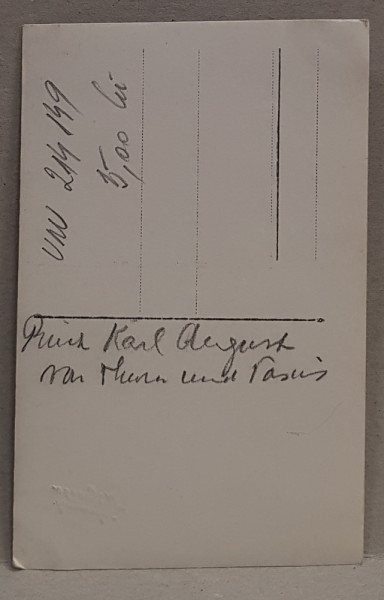 VNV 214 149
5,00 lei
Prinz Karl August
von Thurn und Taxis